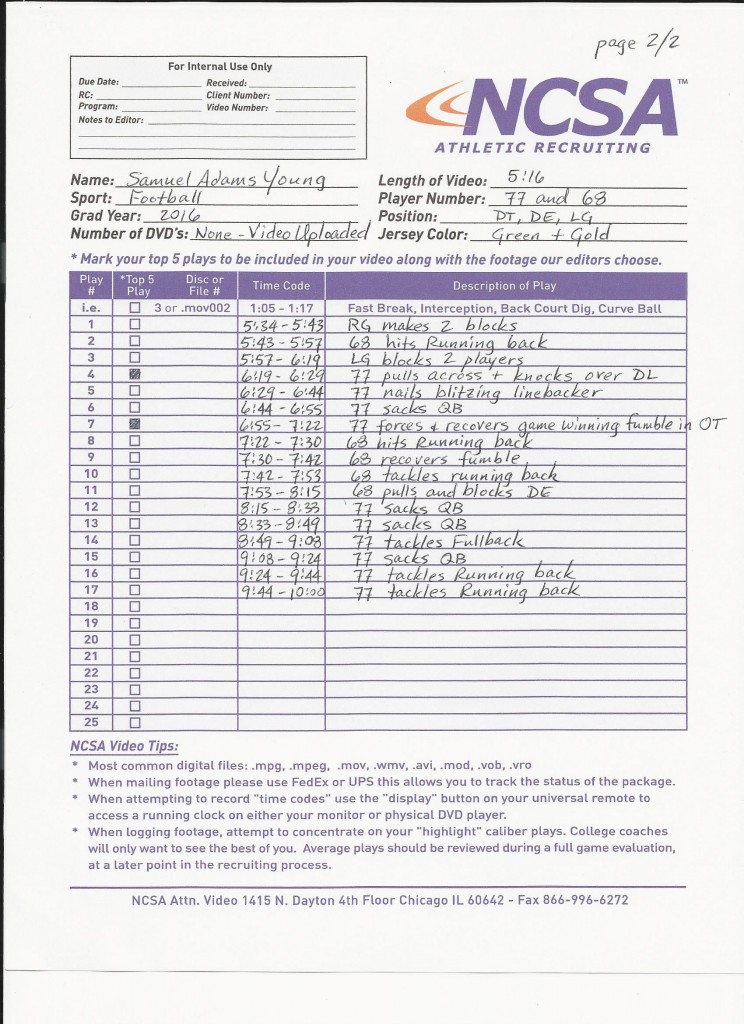 page 2/2
For Internal Use Only
Due Date: Received:
RC: Client Number:
Program: Video Number:
Notes to Editor:
NCSA™
ATHLETIC RECRUITING
Name: Samuel Adams Young Length of Video: 5:16
Sport: Football Player Number: 77 and 68
Grad Year: 2016 Position: DT, DE, LG
Number of DVD's: None - Video Uploaded Jersey Color: Green + Gold
* Mark your top 5 plays to be included in your video along with the footage our editors choose.
Play # *Top 5 Play Disc or File # Time Code Description of Play
i.e. 3 or .mov002 1:05 - 1:17 Fast Break, Interception, Back Court Dig, Curve Ball
1 5:34 - 5:43 RG makes 2 blocks
2 5:43 - 5:57 68 hits Running back
3 5:57 - 6:19 LG blocks 2 players
4 6:19 - 6:29 77 pulls across + knocks over DL
5 6:29 - 6:44 77 nails blitzing linebacker
6 6:44 - 6:55 77 sacks QB
7 6:55 - 7:22 77 forces & recovers game winning fumble in OT
8 7:22 - 7:30 68 hits Running back
9 7:30 - 7:42 68 recovers fumble
10 7:42 - 7:53 68 tackles running back
11 7:53 - 8:15 68 pulls and blocks DE
12 8:15 - 8:33 77 sacks QB
13 8:33 - 8:49 77 sacks QB
14 8:49 - 9:08 77 tackles Fullback
15 9:08 - 9:24 77 sacks QB
16 9:24 - 9:44 77 tackles Running back
17 9:44 - 10:00 77 tackles Running back
18
19
20
21
22
23
24
25
NCSA Video Tips:
* Most common digital files: .mpg, .mpeg, .mov, .wmv, .avi, .mod, .vob, .vro
* When mailing footage please use FedEx or UPS this allows you to track the status of the package.
* When attempting to record "time codes" use the "display" button on your universal remote to
access a running clock on either your monitor or physical DVD player.
* When logging footage, attempt to concentrate on your "highlight" caliber plays. College coaches
will only want to see the best of you. Average plays should be reviewed during a full game evaluation,
at a later point in the recruiting process.
NCSA Attn. Video 1415 N. Dayton 4th Floor Chicago IL 60642 - Fax 866-996-6272